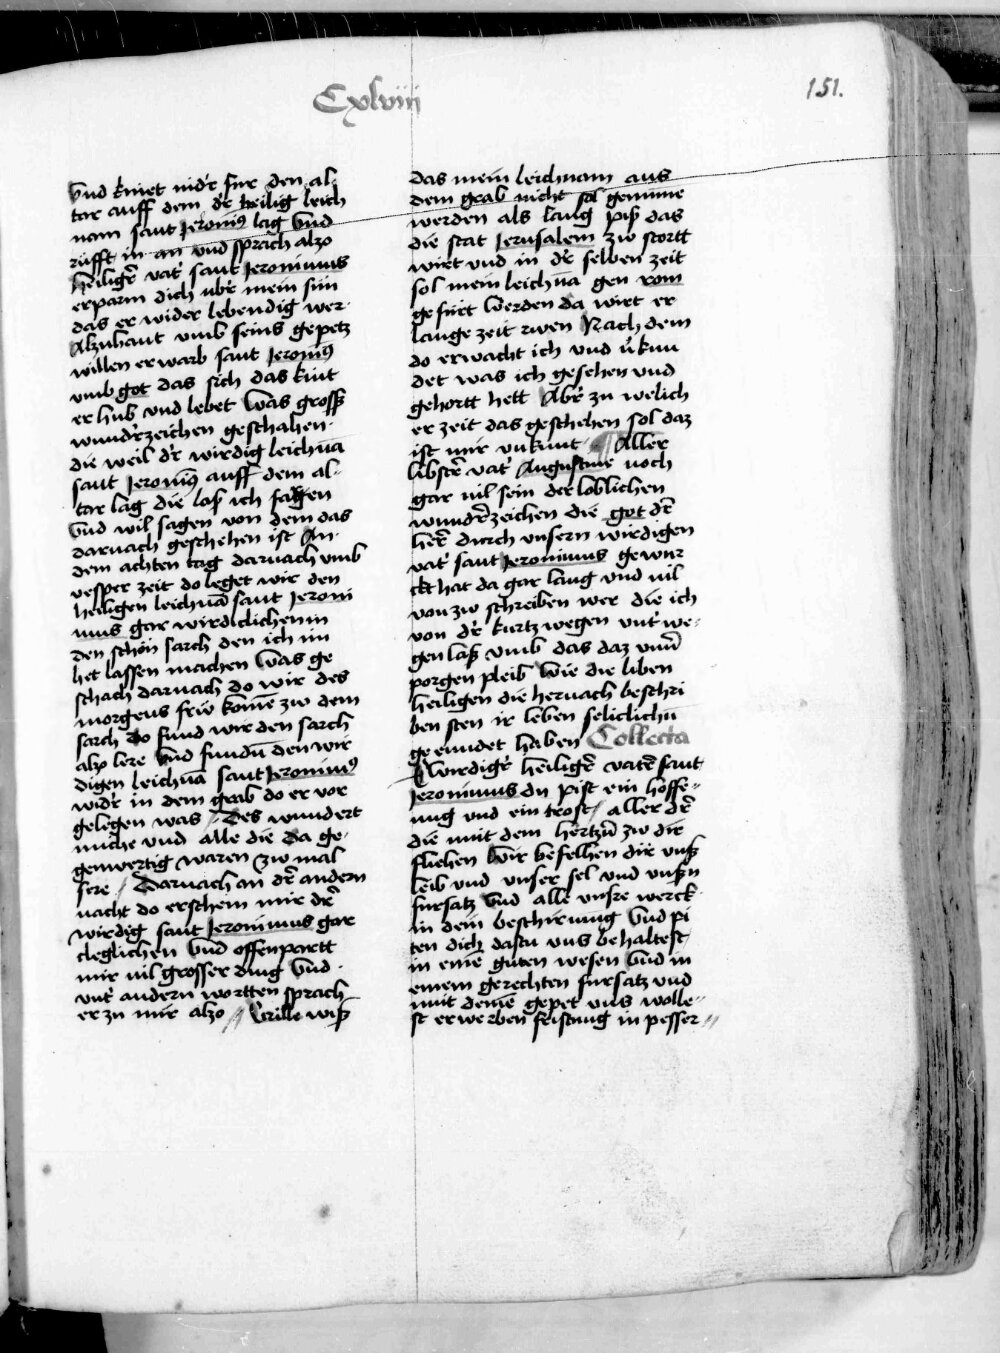 Cxlviij
151.
Vnd kniet nid'r fur den al-
tar auff dem d'r heilig leich
nam sant Jeronimꝰ lag Vnd
rüfft in an vnd sprach alzo
heilig'r vat' sant Jeronimus
erparm dich ub'r mein sun
das er wider lebendig wer.
Alzuhant vmb seins gepetz
willen erwarb sant Jeronimꝰ
vmb got das sich das kint
er hub vnd lebet Was grosß
wund'rzeichen geschahen.
die weil d'r wirdig leichnā
sant Jeronimꝰ auff dem al-
tar lag die loß ich farn
Vnd wil sagen von dem das
darnach geschehen ist An.
dem achten tag darnach vmb
vesper zeit do leget wir den
heiligen leichnā sant Jeroni
mus gar wirdiclichen in
den schön sarch den ich im
het lassen machen Was ge
schach darnach do wir des
morgens frw komē zw dem
sarch do fund wir den sarch
alzo lere Vnd fundn̄ den wir
digen leichnā sant Jeronimꝰ
wid'r in dem grab do er vor
gelegen was // Des wundert
miche vnd alle die da ge-
genwertig waren zw mal
sere // Darnach an d'r andern
nacht do erschein mir d'r
wirdig sant Jeronimus gar
cleglichen Vnd offenpartt
mir vil grosser ding Vnd.
vnt' andern wortten sprach
er zu mir alzo // Cirille wiß
das mein leichnam aus
dem grab nicht sol genume
werden als lang piß das
die stat Jerusalem zw stortt
wirt vnd in d'r selben zeit
sol mein leichnā gen rom
gefurt werden da wirt er
lange zeit rwen Nach dem
do erwacht ich vnd v'kun
det was ich gesehen vnd
gehortt hett Ab'r zu welich
er zeit das geschehen sol daz
ist mir vnkunt // ¶ Aller
libst'r vat' Augustine noch
gar vil sein der loblichen
wund'rzeichen die got d'r
her' durch vnsern wirdigen
vat' sant Jeronimus gewur
ckt hat da gar lang vnd vil
von zw schreiben wer die ich
von d'r kurtz wegen vnt'we-
gen laß vmb das daz vnu'
porgen pleib Wie die liben
heiligen die hernach beschri
ben sten ir leben seliclichn̄
geenndet haben Collecta
O Wirdig'r heilig'r vater sant
Jeronimus du pist ein hoffe-
nug vnd ein trost / aller d'r
die mit dem hertzn̄ zw dir
fliehen Wir befelhen dir vnsß
leib vnd vnser sel vnd vnßn
fursatz Vnd alle vnsre werck
in dein beschirmug Vnd pi
ten dich dastu vns behaltest
in eine guten wesen Vnd in
einem gerechten fursatz vnd
mit deine gepet vns wolle-
st erwerben fristnug in pesser //